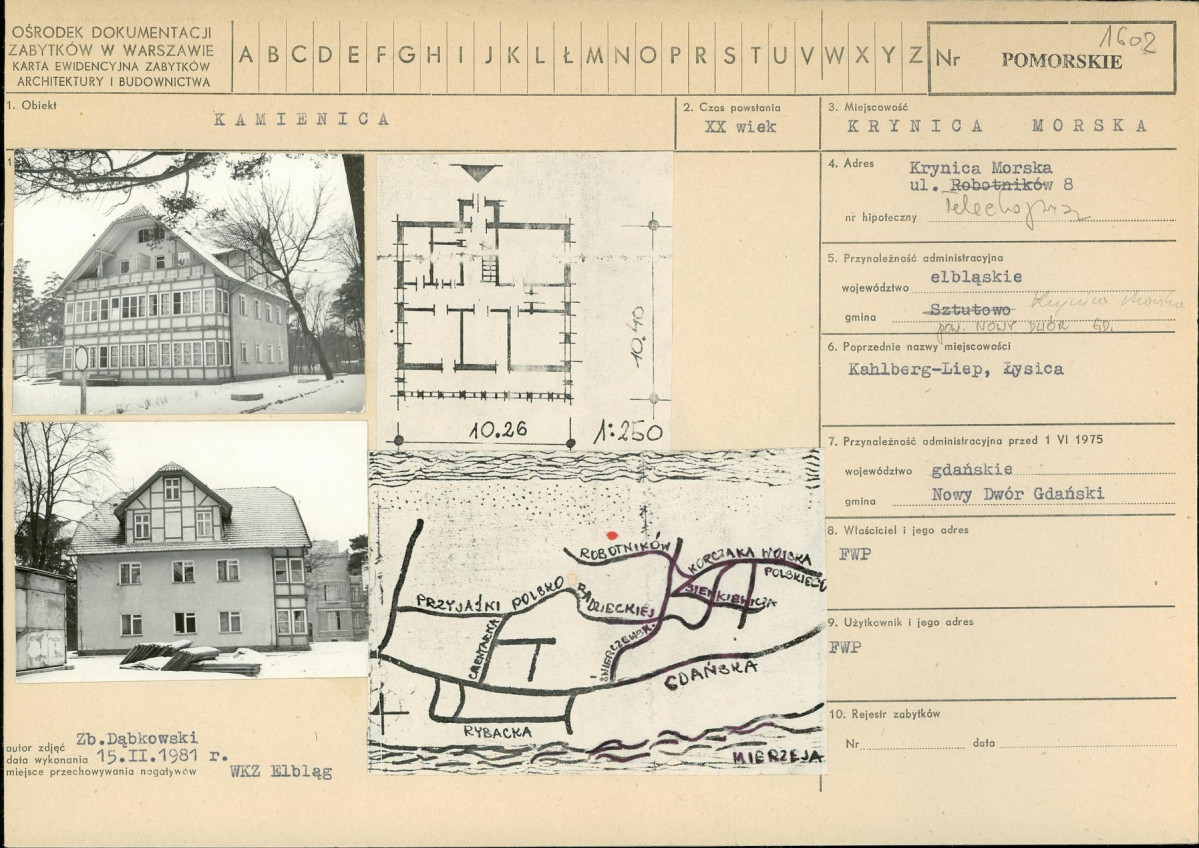 OŚRODEK DOKUMENTACJI
ZABYTKÓW W WARSZAWIE
KARTA EWIDENCYJNA ZABYTKÓW
ARCHITEKTURY I BUDOWNICTWA
A B C D E F G H I J K L Ł M N O P R S T U V W X Y Z
Nr POMORSKIE 1602
1. Obiekt
KAMIENICA
2. Czas powstania
XX wiek
3. Miejscowość
KRYNICA MORSKA
4. Adres
Krynica Morska
ul. Robotników 8
nr hipoteczny
5. Przynależność administracyjna
województwo elbląskie
gmina Sztutowo Krynica Morska
pow. NOWY DWÓR GD.
6. Poprzednie nazwy miejscowości
Kahlberg-Liep, Łysica
7. Przynależność administracyjna przed 1 VI 1975
województwo gdańskie
gmina Nowy Dwór Gdański
8. Właściciel i jego adres
FWP
9. Użytkownik i jego adres
FWP
10. Rejestr zabytków
Nr data
1
10.40
10.26
1:250
ROBOTNIKÓW
KORCZAKA
WOJSKA
POLSKIEGO
SIENKIEWICZA
PRZYJAŹNI POLSKO RADZIECKIEJ
GDAŃSKA
RYBACKA
MIERZEJA
autor zdjęć Zb.Dąbkowski
data wykonania 15.II.1981 r.
miejsce przechowywania negatywów WKZ Elbląg